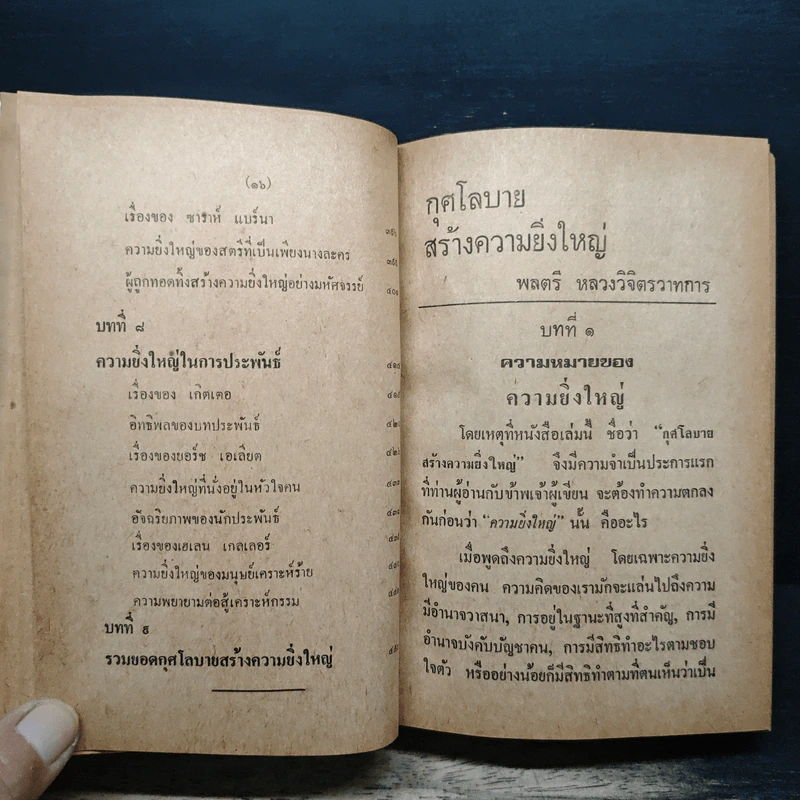 (๑๖)
เรื่องของ ซาราห์ แบร์นา
ความยิ่งใหญ่ของสตรีที่เป็นเพียงนางละคร
ผู้ถูกทอดทิ้งสร้างความยิ่งใหญ่อย่างมหัศจรรย์ ๔๐๑
บทที่ ๘
ความยิ่งใหญ่ในการประพันธ์
เรื่องของ เกิตเตอ
อิทธิพลของบทประพันธ์
เรื่องของยอร์ช เอเลียต
ความยิ่งใหญ่ที่นั่งอยู่ในหัวใจคน
อัจฉริยภาพของนักประพันธ์
เรื่องของเฮเลน เกลเลอร์
ความยิ่งใหญ่ของมนุษย์เคราะห์ร้าย
ความพยายามต่อสู้เคราะห์กรรม
บทที่ ๙
รวมยอดกุศโลบายสร้างความยิ่งใหญ่
กุศโลบาย
สร้างความยิ่งใหญ่
พลตรี หลวงวิจิตรวาทการ
บทที่ ๑
ความหมายของ
ความยิ่งใหญ่
โดยเหตุที่หนังสือเล่มนี้ ชื่อว่า “กุศโลบาย
สร้างความยิ่งใหญ่” จึงมีความจำเป็นประการแรก
ที่ท่านผู้อ่านกับข้าพเจ้าผู้เขียน จะต้องทำความตกลง
กันก่อนว่า “ความยิ่งใหญ่” นั้น คืออะไร
เมื่อพูดถึงความยิ่งใหญ่ โดยเฉพาะความยิ่ง
ใหญ่ของคน ความคิดของเรามักจะแล่นไปถึงความ
มีอำนาจวาสนา, การอยู่ในฐานะที่สูงที่สำคัญ, การมี
อำนาจบังคับบัญชาคน, การมีสิทธิทำอะไรตามชอบ
ใจตัว หรืออย่างน้อยก็มีสิทธิทำตามที่ตนเห็นว่าเป็น